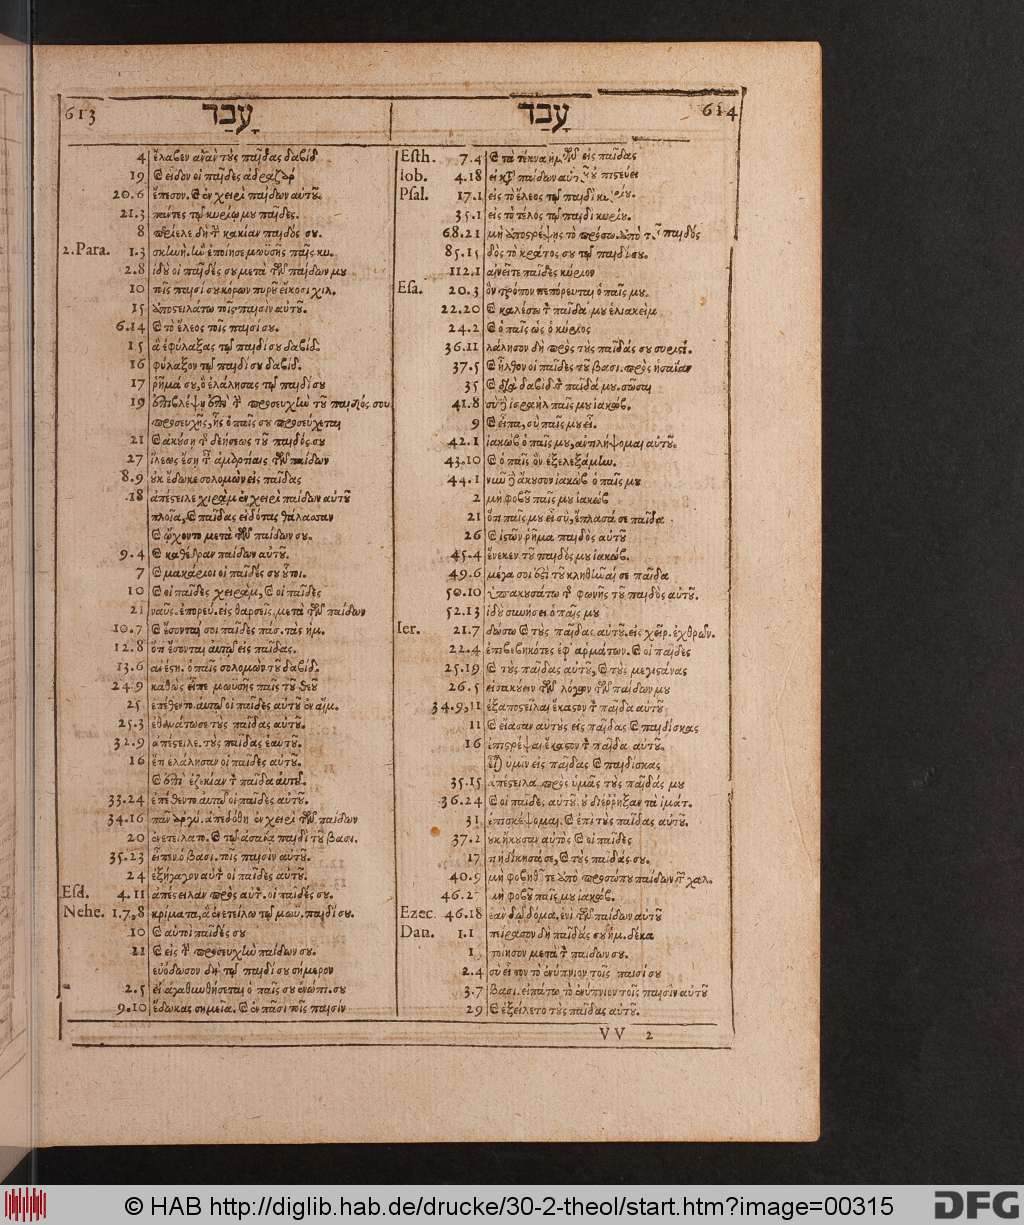 613 עָבַד
4 ἔλαβεν ἀνὰν τοὺς παῖδας δαβίδ
19 καὶ εἶδον οἱ παῖδες ἀδρααζὰρ
20.6 ἔπεσον. καὶ ἐν χειρὶ παίδων αὐτοῦ.
21.3 πάντες τῷ κυρίῳ μου παῖδες.
8 περίελε δὴ τὴν κακίαν παιδός σου.
2.Para. 1.3 σκηνὴ. ἣν ἐποίησε μωϋσῆς παῖς κυ.
2.8 ἰδοὺ οἱ παῖδές σου μετὰ τῶν παίδων μου
10 τοῖς παισί σου κόρων πυροῦ εἴκοσι χιλ.
15 ἀποστειλάτω τοῖς παισὶν αὐτοῦ.
6.14 καὶ τὸ ἔλεος τοῖς παισί σου.
15 ἃ ἐφύλαξας τῷ παιδί σου δαβίδ.
16 φύλαξον τῷ παιδί σου δαβίδ.
17 ῥῆμά σου, ὃ ἐλάλησας τῷ παιδί σου
19 ἐπιβλέψῃ ἐπὶ τὴν προσευχὴν τοῦ παιδός σου
προσευχῆς, ἧς ὁ παῖς σου προσεύχεται
21 καὶ ἀκούσῃ τῆς δεήσεως τοῦ παιδός σου
27 ἵλεως ἔσῃ ταῖς ἁμαρτίαις τῶν παίδων
8.9 οὐκ ἔδωκε σολομὼν εἰς παῖδας
.18 ἀπέστειλε χιρὰμ ἐν χειρὶ παίδων αὐτοῦ
πλοῖα, καὶ παῖδας εἰδότας θάλασσαν
καὶ ᾤχοντο μετὰ τῶν παίδων σου.
9.4 καὶ καθέδραν παίδων αὐτοῦ.
7 καὶ μακάριοι οἱ παῖδές σου οὗτοι.
10 καὶ οἱ παῖδες χειρὰμ, καὶ οἱ παῖδες
21 ναῦς. ἐπορεύ. εἰς θαρσεῖς. μετὰ τῶν παίδων
10.7 καὶ ἔσονταί σοι παῖδες πάσ. τὰς ἡμ.
12.8 ὅτι ἔσονται αὐτῷ εἰς παῖδας.
13.6 ἀνέστη. ὁ παῖς σολομὼν τοῦ δαβίδ.
24.9 καθὼς εἶπε μωϋσῆς παῖς τοῦ θεοῦ
25 ἐπέθεντο. αὐτῷ οἱ παῖδες αὐτοῦ ἐν αἵμ.
25.3 ἐθανάτωσε τοὺς παῖδας αὐτοῦ.
32.9 ἀπέστειλε. τοὺς παῖδας ἑαυτοῦ.
16 ἔτι ἐλάλησαν οἱ παῖδες αὐτοῦ.
καὶ ἐπὶ ἐζεκίαν τὸν παῖδα αὐτοῦ.
33.24 ἐπέθεντο αὐτῷ οἱ παῖδες αὐτοῦ.
34.16 πᾶν ἀργύ. ἀπεδόθη ἐν χειρὶ τῶν παίδων
20 ἐνετείλατο. καὶ τῷ ἀσαΐᾳ παιδὶ τοῦ βασι.
35.23 εἶπεν. ὁ βασι. τοῖς παισὶν αὐτοῦ.
24 ἐξήγαγον αὐτὸν οἱ παῖδες αὐτοῦ.
Esd. 4.11 ἀπέστειλαν πρὸς αὐτ. οἱ παῖδές σου.
Nehe. 1.7,8 κρίματα, ἃ ἐνετείλω τῷ μωϋ. παιδί σου.
10 καὶ αὐτοὶ παῖδές σου
11 καὶ εἰς τὴν προσευχὴν παίδων σου.
εὐόδωσον δὴ τῷ παιδί σου σήμερον
2.5 εἰ ἀγαθυνθήσεται ὁ παῖς σου ἐνώπι. σου
9.10 ἔδωκας σημεῖα. καὶ ἐν πᾶσι τοῖς παισὶν
עָבַד 614
Esth. 7.4 καὶ τὰ τέκνα ἡμῶν εἰς παῖδας
Iob. 4.18 εἰ κατὰ παίδων αὐτοῦ οὐ πιστεύει
Psal. 17.1 εἰς τὸ ἔλεος τῷ παιδὶ κυρίου.
35.1 εἰς τὸ τέλος τῷ παιδὶ κυρίου.
68.21 μὴ ἀποστρέψῃς τὸ πρόσω. ἀπὸ τοῦ παιδός
85.15 δὸς τὸ κράτος σου τῷ παιδί σου.
112.1 αἰνεῖτε παῖδες κύριον
Esa. 20.3 ὃν τρόπον πεπόρευται ὁ παῖς μου.
22.20 καὶ καλέσω τὸν παῖδά μου ἐλιακεὶμ
24.2 καὶ ὁ παῖς ὡς ὁ κύριος
36.11 λάλησον δὴ πρὸς τοὺς παῖδάς σου συριστί.
37.5 καὶ ἦλθον οἱ παῖδες τοῦ βασι. πρὸς ἡσαΐαν
35 καὶ διὰ δαβὶδ τὸν παῖδά μου. σῶσαι
41.8 σὺ δὲ ἰσραὴλ παῖς μου ἰακώβ.
9 καὶ εἶπα, σὺ παῖς μου εἶ.
42.1 ἰακὼβ ὁ παῖς μου, ἀντιλήψομαι αὐτοῦ.
43.10 καὶ ὁ παῖς ὃν ἐξελεξάμην.
44.1 νῦν δὲ ἄκουσον ἰακὼβ ὁ παῖς μου
2 μὴ φοβοῦ παῖς μου ἰακώβ
21 ὅτι παῖς μου εἶ σὺ, ἔπλασά σε παῖδα
26 καὶ ἱστῶν ῥῆμα παιδὸς αὐτοῦ
45.4 ἕνεκεν τοῦ παιδός μου ἰακώβ.
49.6 μέγα σοι ἐστὶ τοῦ κληθῆναί σε παῖδα
50.10 ὑπακουσάτω τῆς φωνῆς τοῦ παιδὸς αὐτοῦ.
52.13 ἰδοὺ συνήσει ὁ παῖς μου
Ier. 21.7 δώσω καὶ τοὺς παῖδας αὐτοῦ. εἰς χεῖρ. ἐχθρῶν.
22.4 ἐπιβεβηκότες ἐφ' ἁρμάτων. καὶ οἱ παῖδες
25.19 καὶ τοὺς παῖδας αὐτοῦ, καὶ τοὺς μεγιστάνας
26.5 εἰσακούειν τῶν λόγων τῶν παίδων μου
34.9,11 ἐξαποστεῖλαι ἕκαστον τὸν παῖδα αὐτοῦ
11 καὶ εἴασαν αὐτοὺς εἰς παῖδας καὶ παιδίσκας
16 ἐπιστρέψαι ἕκαστον τὸν παῖδα αὐτοῦ.
εἶναι ὑμῖν εἰς παῖδας καὶ παιδίσκας
35.15 ἀπέστειλα πρὸς ὑμᾶς τοὺς παῖδάς μου
36.24 καὶ οἱ παῖδες αὐτοῦ. οὐ διέῤῥηξαν τὰ ἱμάτ.
31 ἐπισκέψομαι. καὶ ἐπὶ τοὺς παῖδας αὐτοῦ.
37.2 οὐκ ἤκουσαν αὐτὸς καὶ οἱ παῖδες
17 τί ἠδίκησά σε, καὶ τοὺς παῖδάς σου.
40.9 μὴ φοβηθῆτε ἀπὸ προσώπου παίδων τῶν χαλ.
46.27 μὴ φοβοῦ παῖς μου ἰακώβ.
Ezec. 46.18 ἐὰν δῷ δόμα. ἑνὶ τῶν παίδων αὐτοῦ
Dan. 1.1 πείρασον δὴ παῖδάς σου ἡμ. δέκα
1 ποίησον μετὰ τῶν παίδων σου.
2.4 σὺ εἶπον τὸ ἐνύπνιον τοῖς παισί σου
3.7 βασι. εἰπάτω τὸ ἐνύπνιον τοῖς παισὶν αὐτοῦ
29 καὶ ἐξείλετο τοὺς παῖδας αὐτοῦ.
VV 2
© HAB http://diglib.hab.de/drucke/30-2-theol/start.htm?image=00315
DFG